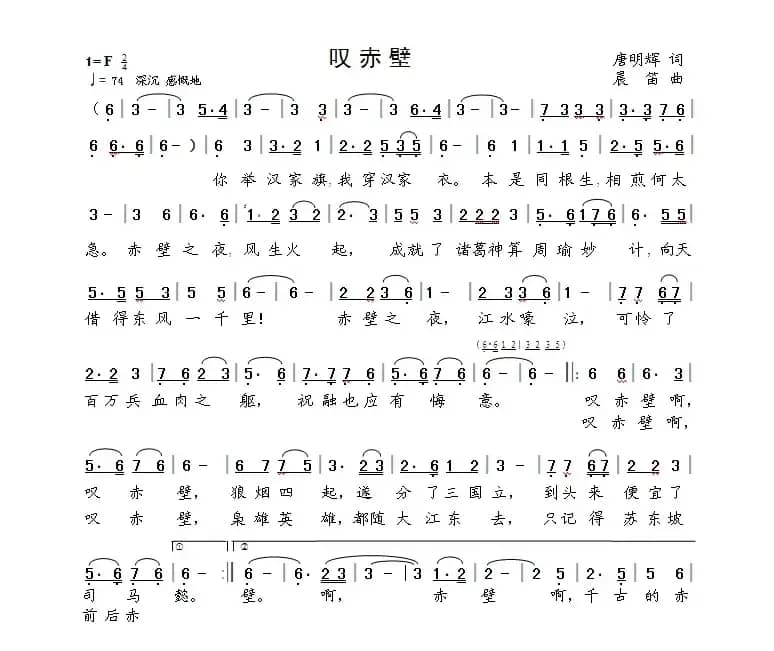 叹赤壁
1=F 2/4
♩= 74 深沉 感慨地
唐明辉 词
晨 笛 曲
(6 | 3 - | 3 5·4 | 3 - | 3 3 | 3 - | 3 6·4 | 3 - | 3 - | 7 3 3 3 | 3·3 7 6 |
6 6·6 | 6 - ) | 6 3 | 3·2 1 | 2·2 5 3 5 | 6 - | 6 1 | 1·1 5 | 2·2 2 | 5·6 |
你 举 汉 家 旗,我 穿 汉 家 衣。 本 是 同 根 生,相 煎 何 太
3 - | 3 6 | 6· 6 | 1· 2 3 2 | 2· 3 | 5 5 3 | 2 2 2 2 | 5·6 1 7 6 | 6 5 5 |
急。 赤 壁 之 夜,风 生 火 起, 成 就 了 诸 葛 神 算 周 瑜 妙 计,向 天
5· 5 | 5 5 3 | 5 5 | 6 - | 6 - | 2 2 3 6 | 1 - | 2 3 3 6 | 1 - | 7 7 6 7 |
借 得 东 风 一 千 里! 赤 壁 之 夜, 江 水 嚎 泣, 可 怜 了
(6·6 1 2 | 3 2 3 5)
2·2 3 | 7 6 2 3 | 5· 6 | 7·7 7 6 | 5·6 7 6 | 6 - | 6 - |: 6 6 | 6· 3 |
百 万 兵 血 肉 之 躯, 祝 融 也 应 有 悔 意。 叹 赤 壁 啊,
叹 赤 壁 啊,
5· 6 7 6 | 6 - | 6 7 7 5 | 3· 2 3 | 2·6 1 2 | 3 - | 7 7 6 7 | 2 2 3 |
叹 赤 壁, 狼 烟 四 起,遂 分 了 三 国 立, 到 头 来 便 宜 了
叹 赤 壁, 枭 雄 英 雄,都 随 大 江 东 去, 只 记 得 苏 东 坡
① ②
5· 6 7 6 | 6 - :| 6 - | 6· 2 3 | 3 - | 3 1·2 | 2 - | 2 5 | 5· 6 | 7 6 7 |
司 马 懿。 壁。 啊, 赤 壁 啊,千 古 的 赤
前 后 赤